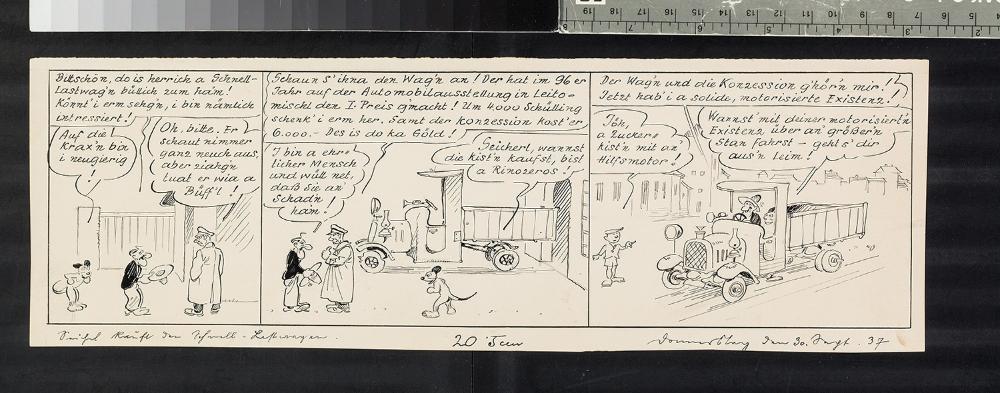 Bittschön, do is herrich a Schnell-
Lastwag'n büllich zum ham!
Könnt' i erm sehg'n, i bin nämlich
intressiert!
Auf die
Krax'n bin
i neugierig
!
Oh, bitte. Er
schaut nimmer
ganz neuch aus,
aber ziahg'n
tuat er wia a
Büff'l!
Schaun S' ihna den Wag'n an! Der hat im 96 er
Jahr auf der Automobilausstellung in Leito-
mischl den I. Preis g'macht! Um 4000 Schülling
schenk' i erm her. Samt der Konzession kost' er
6.000.- Des is do ka Göld!
I bin a ehr-
licher Mensch
und wüll net,
daß Sie an'
Schad'n
ham!
Seicherl, wannst
die Kist'n kaufst, bist
a Rinozeros!
Der Wag'n und die Konzession g'hör'n mir!
Jetzt hab' i a solide, motorisierte Existenz!
Töh,
a Zucker-
kist'n mit an'
Hilfsmotor!
Wannst mit deiner motorisiert'n
Existenz über an' größer'n
Stan fahrst - geht s' dir
aus'n Leim!
kauft den Schnell-Lastwagen.
20
Donnerstag den 30. Sept. 37